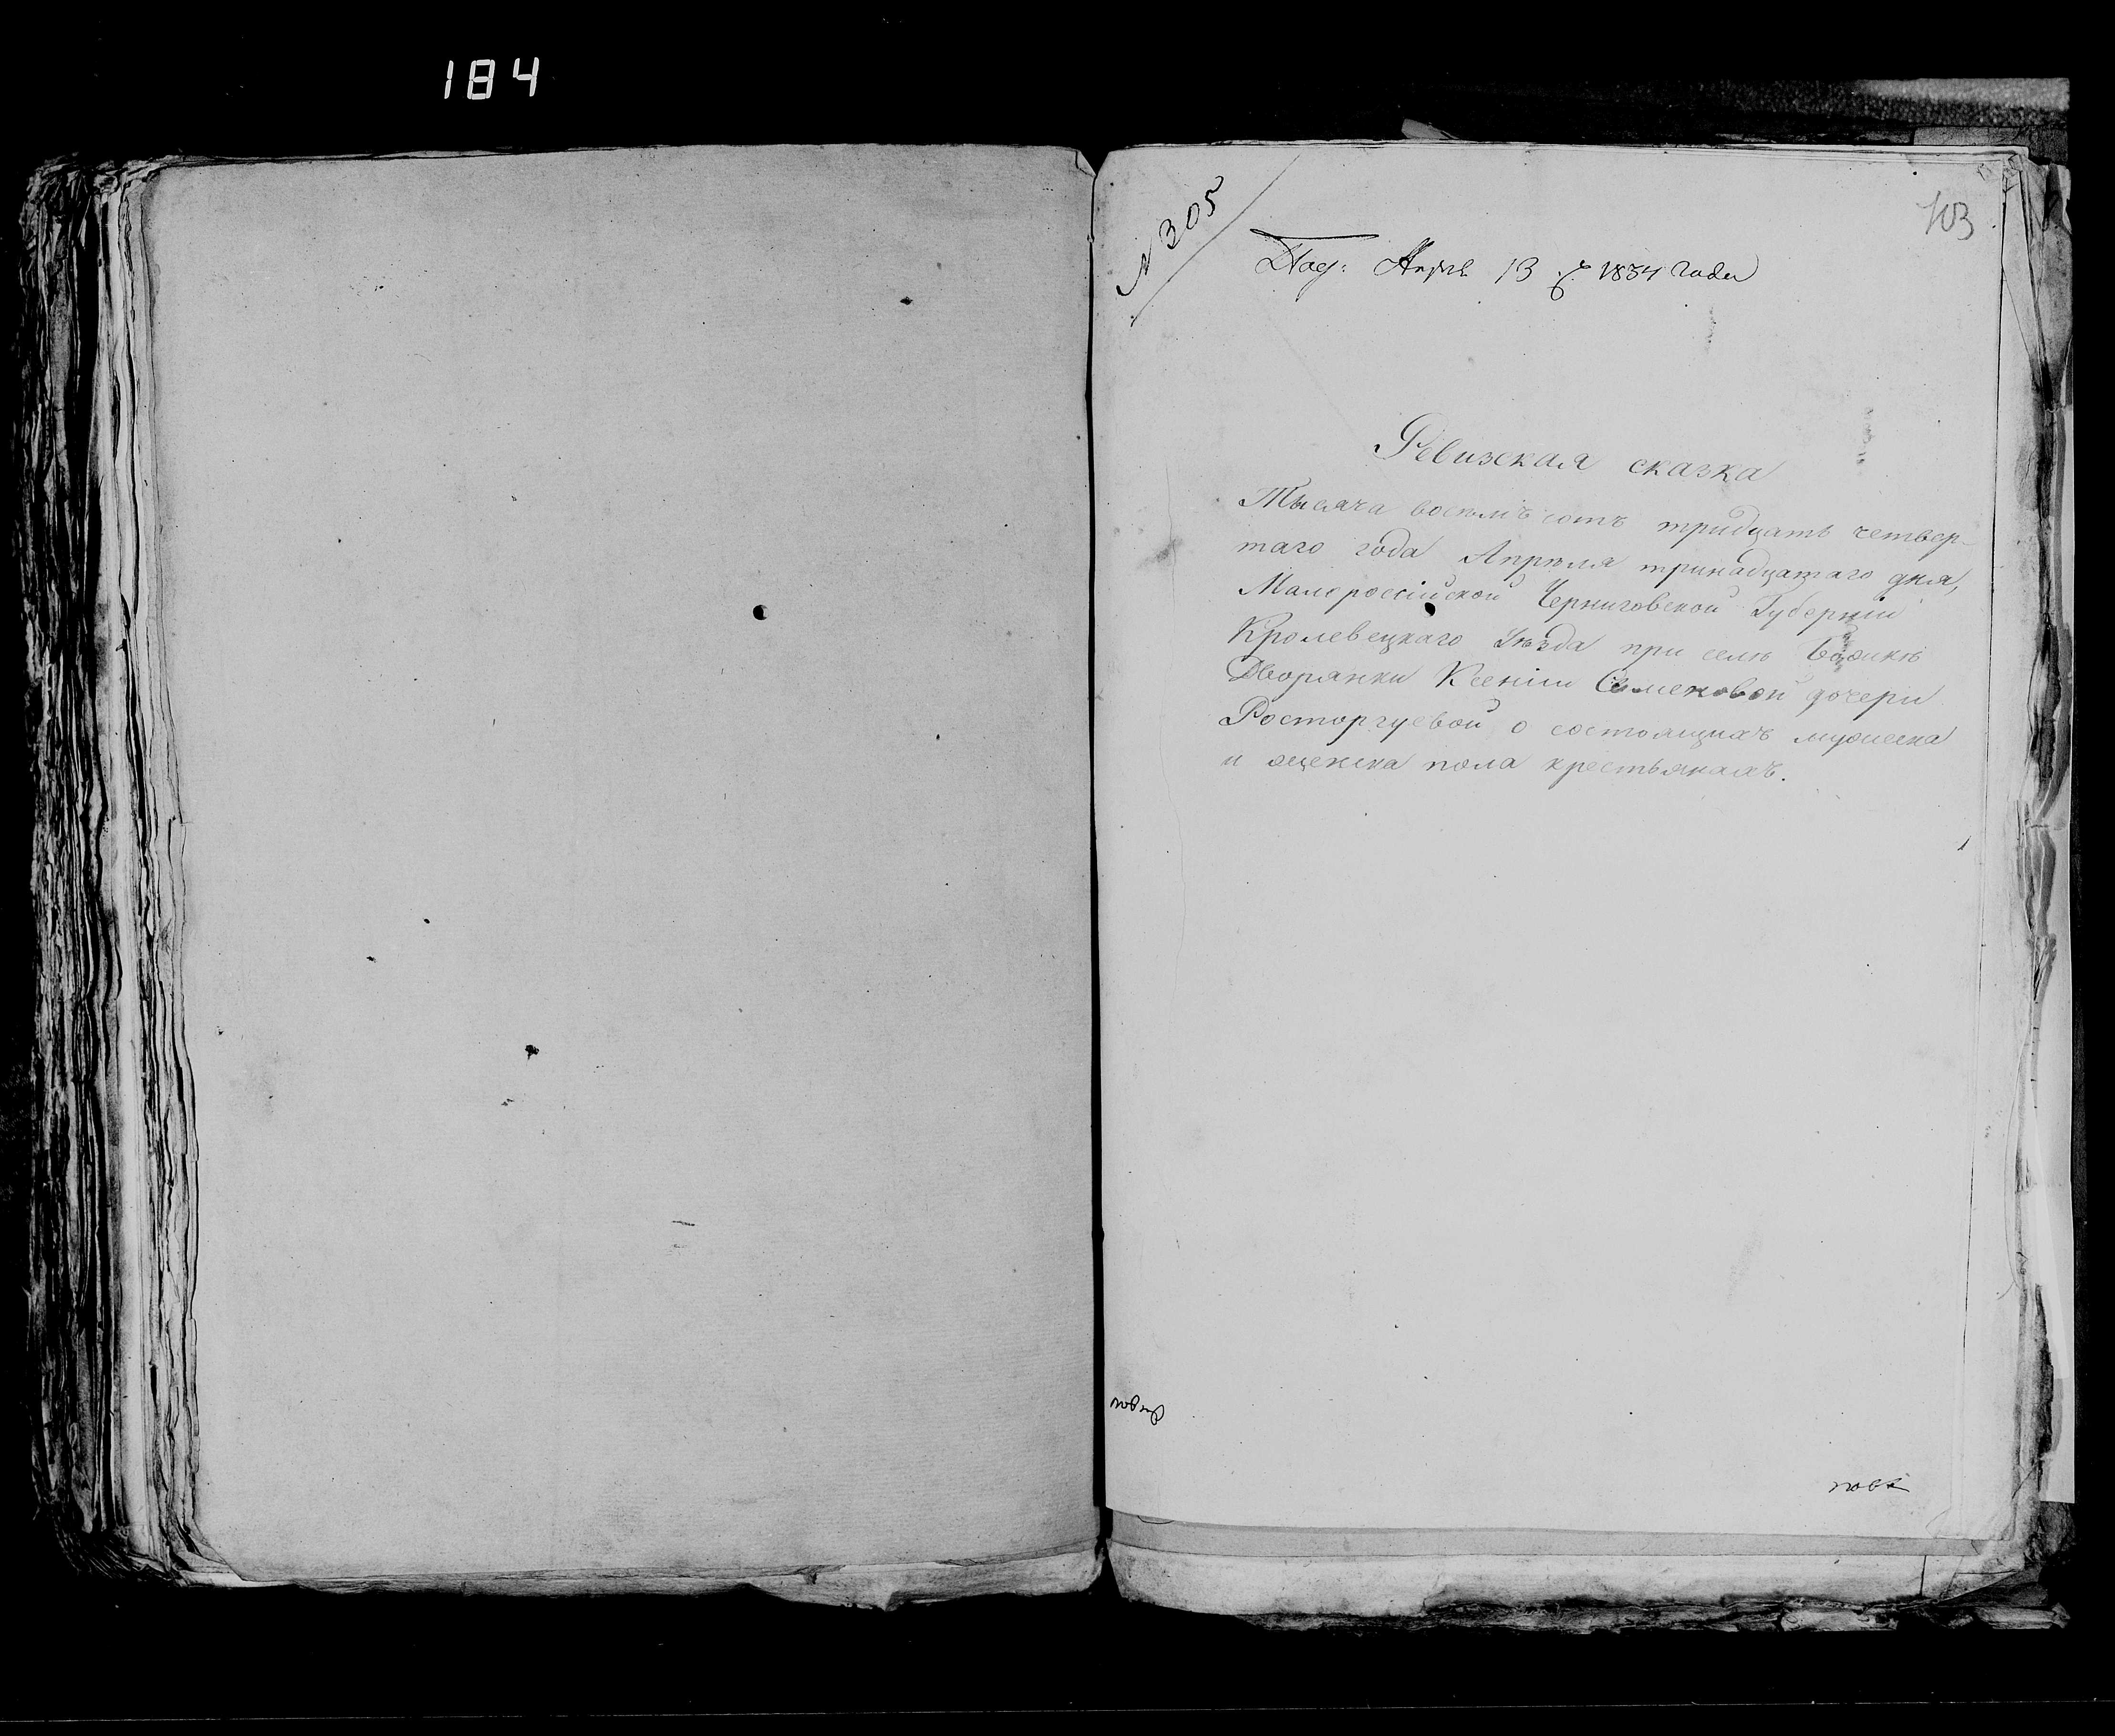 184
№ 305
103
Под: Апрѣл 13 д. 1834 года
Ревизская сказка
Тысяча восемъ сотъ тридцать четвер-
таго года Апрѣля тринадцатаго дня,
Малороссійской Черниговской Губерніи
Кролевецкаго Уѣзда при селѣ
Дворянки Ксеніи Семеновой дочери
Росторгуевой о состоящихъ мужеска
и женска пола крестьянахъ.